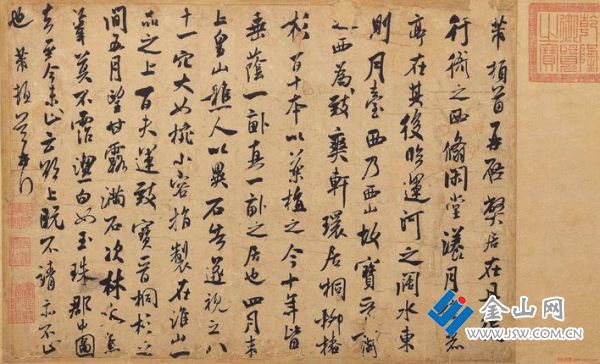 乾隆御覽之寶
芾頓首再啟弊居在丹
行衙之西翛閑堂漾月佳
亭在其後臨運河之闊水東
則月臺西乃西山故寶晉齋
之西為致爽軒環居桐柳椐
杉百十本以藥植之今十年皆
垂蔭一畝真一畝之居也四月末
上皇山樵人以異石告遂視之八
十一穴大如椀小容指製在淮山一
品之上百夫運致寶晉桐杉之
間五月望甘露滿石次林木焦
葦莫不霑潔白如玉珠郡中圖
去至今未止云欲上既不請亦不止
也芾頓首再拜
金山网
www.JSW.com.cn